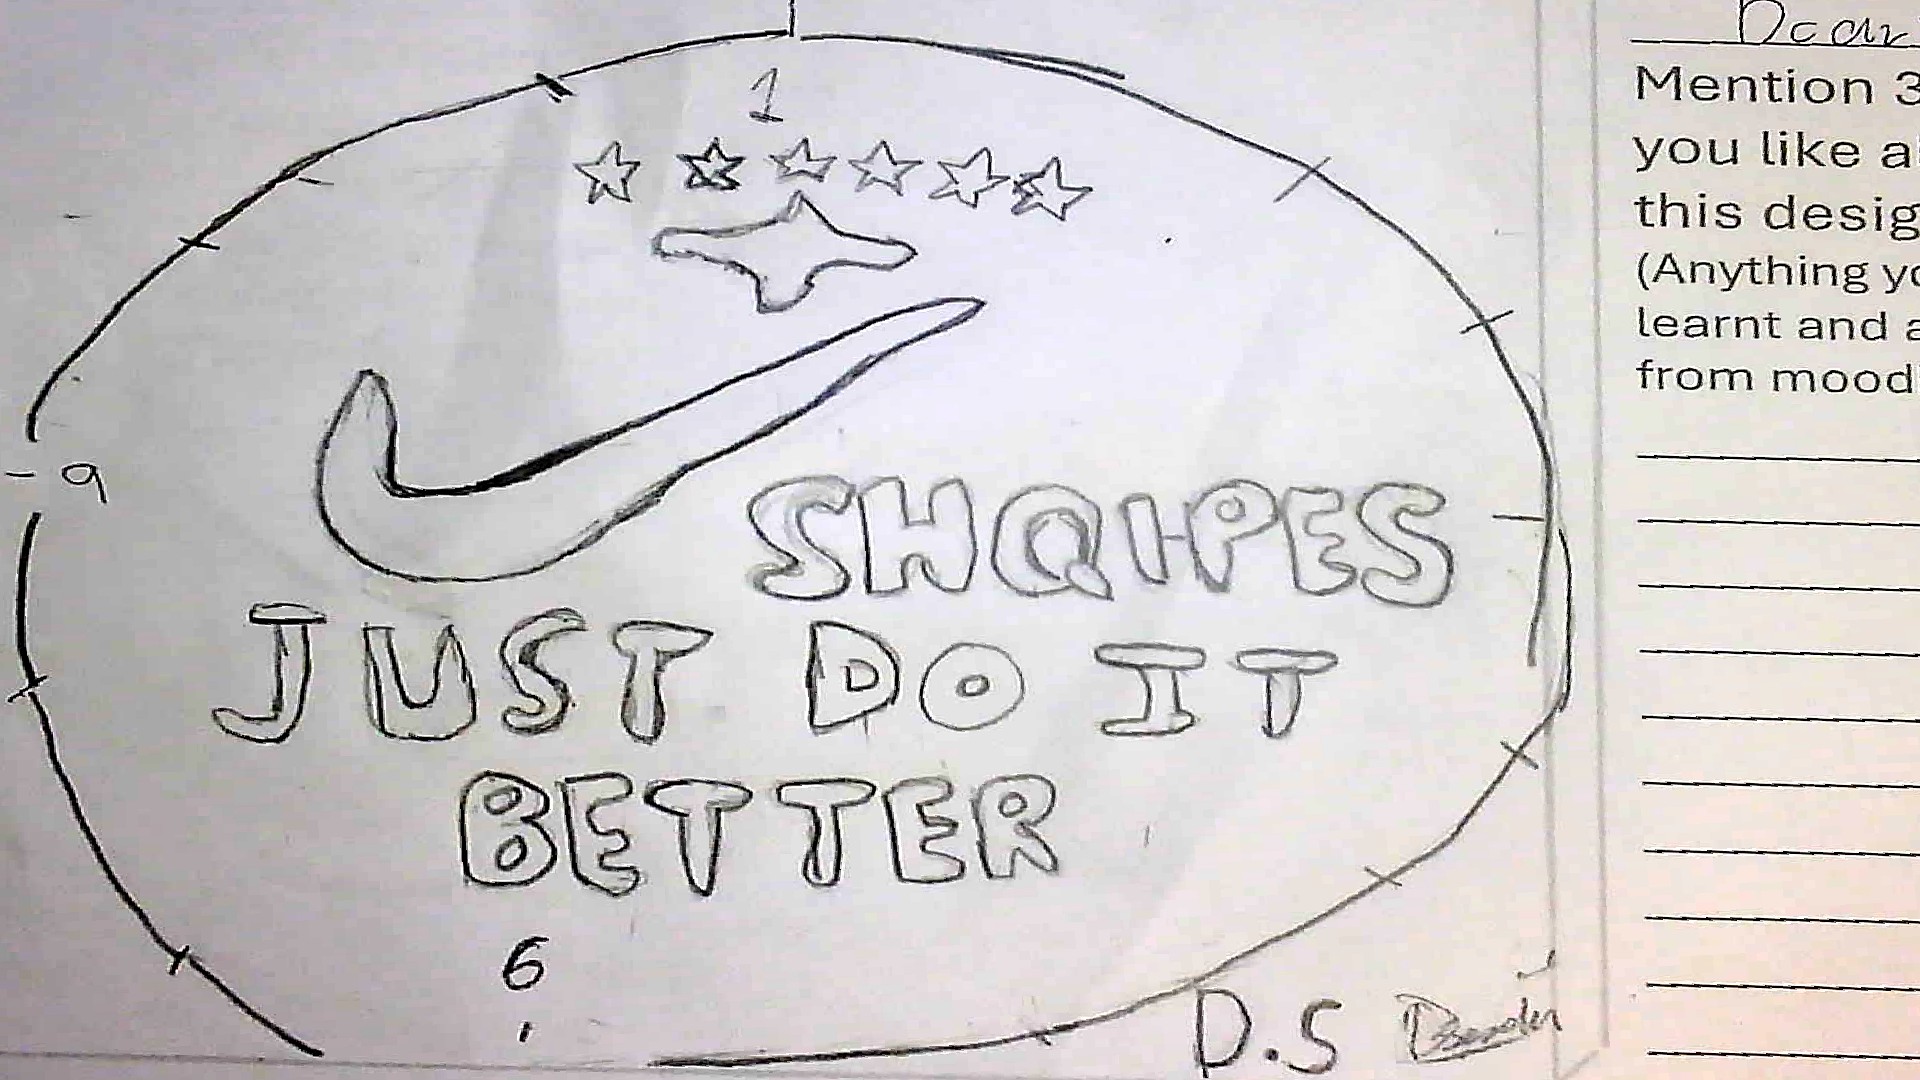 1
- 9
SHQIPES
JUST DO IT
BETTER
6
D.S
Mention 3
you like a
this desig
(Anything yo
learnt and a
from mood